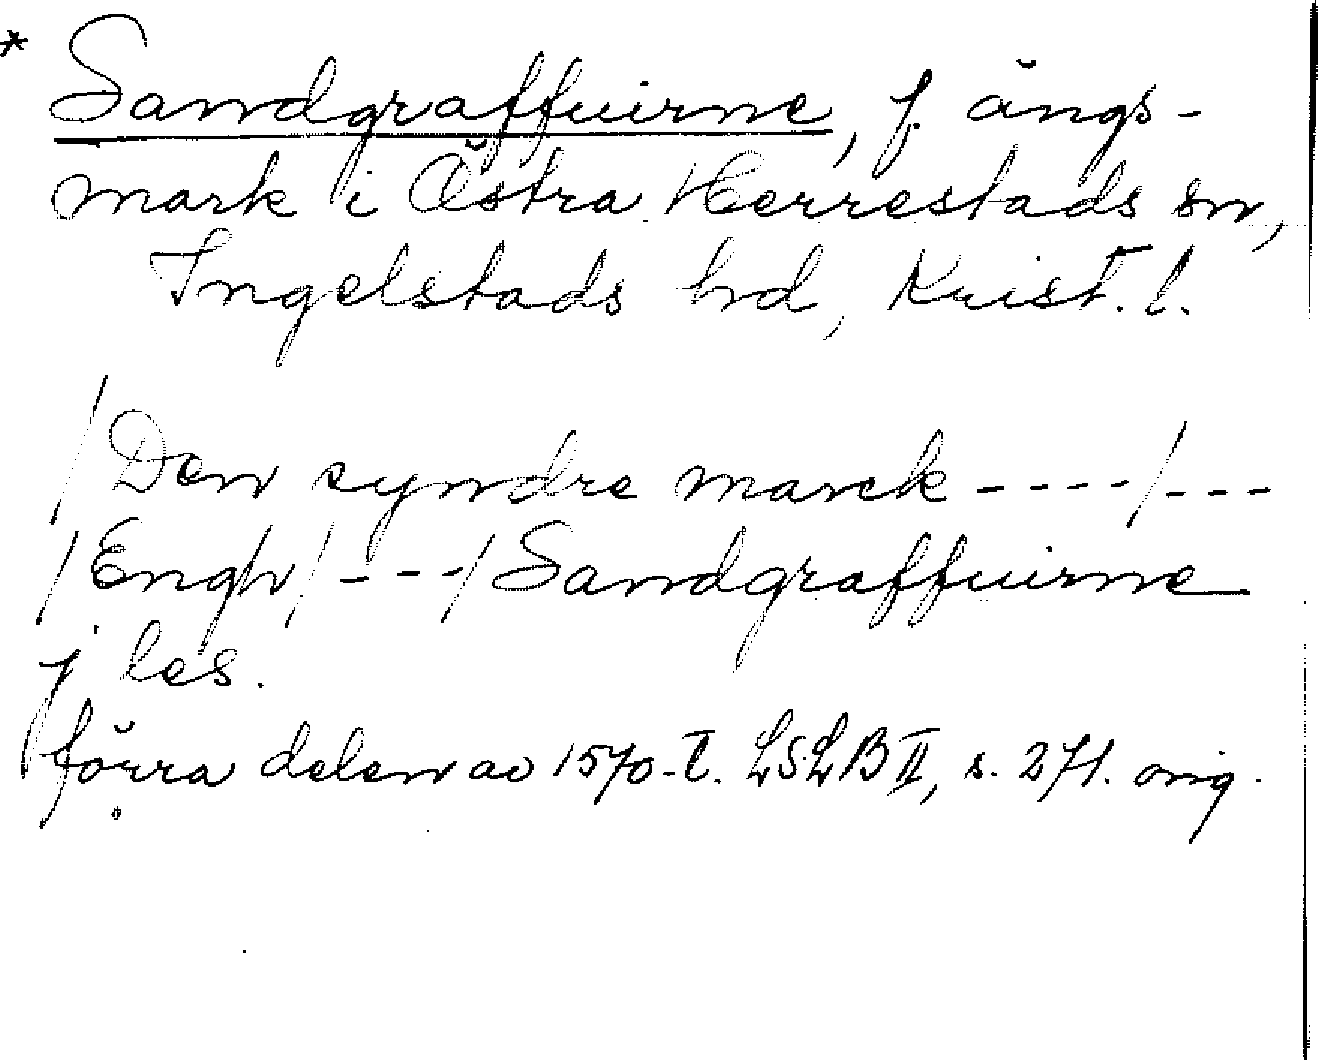 * Sandgraffuirne, f. ängs-
mark i Östra Herrestads sn,
Ingelstads hd, Krist. l.
/Den syndre marck ----/---
/Engh/---/Sandgraffuirne
j les.
förra delen av 1570-t. LSLB II, s. 271. orig.